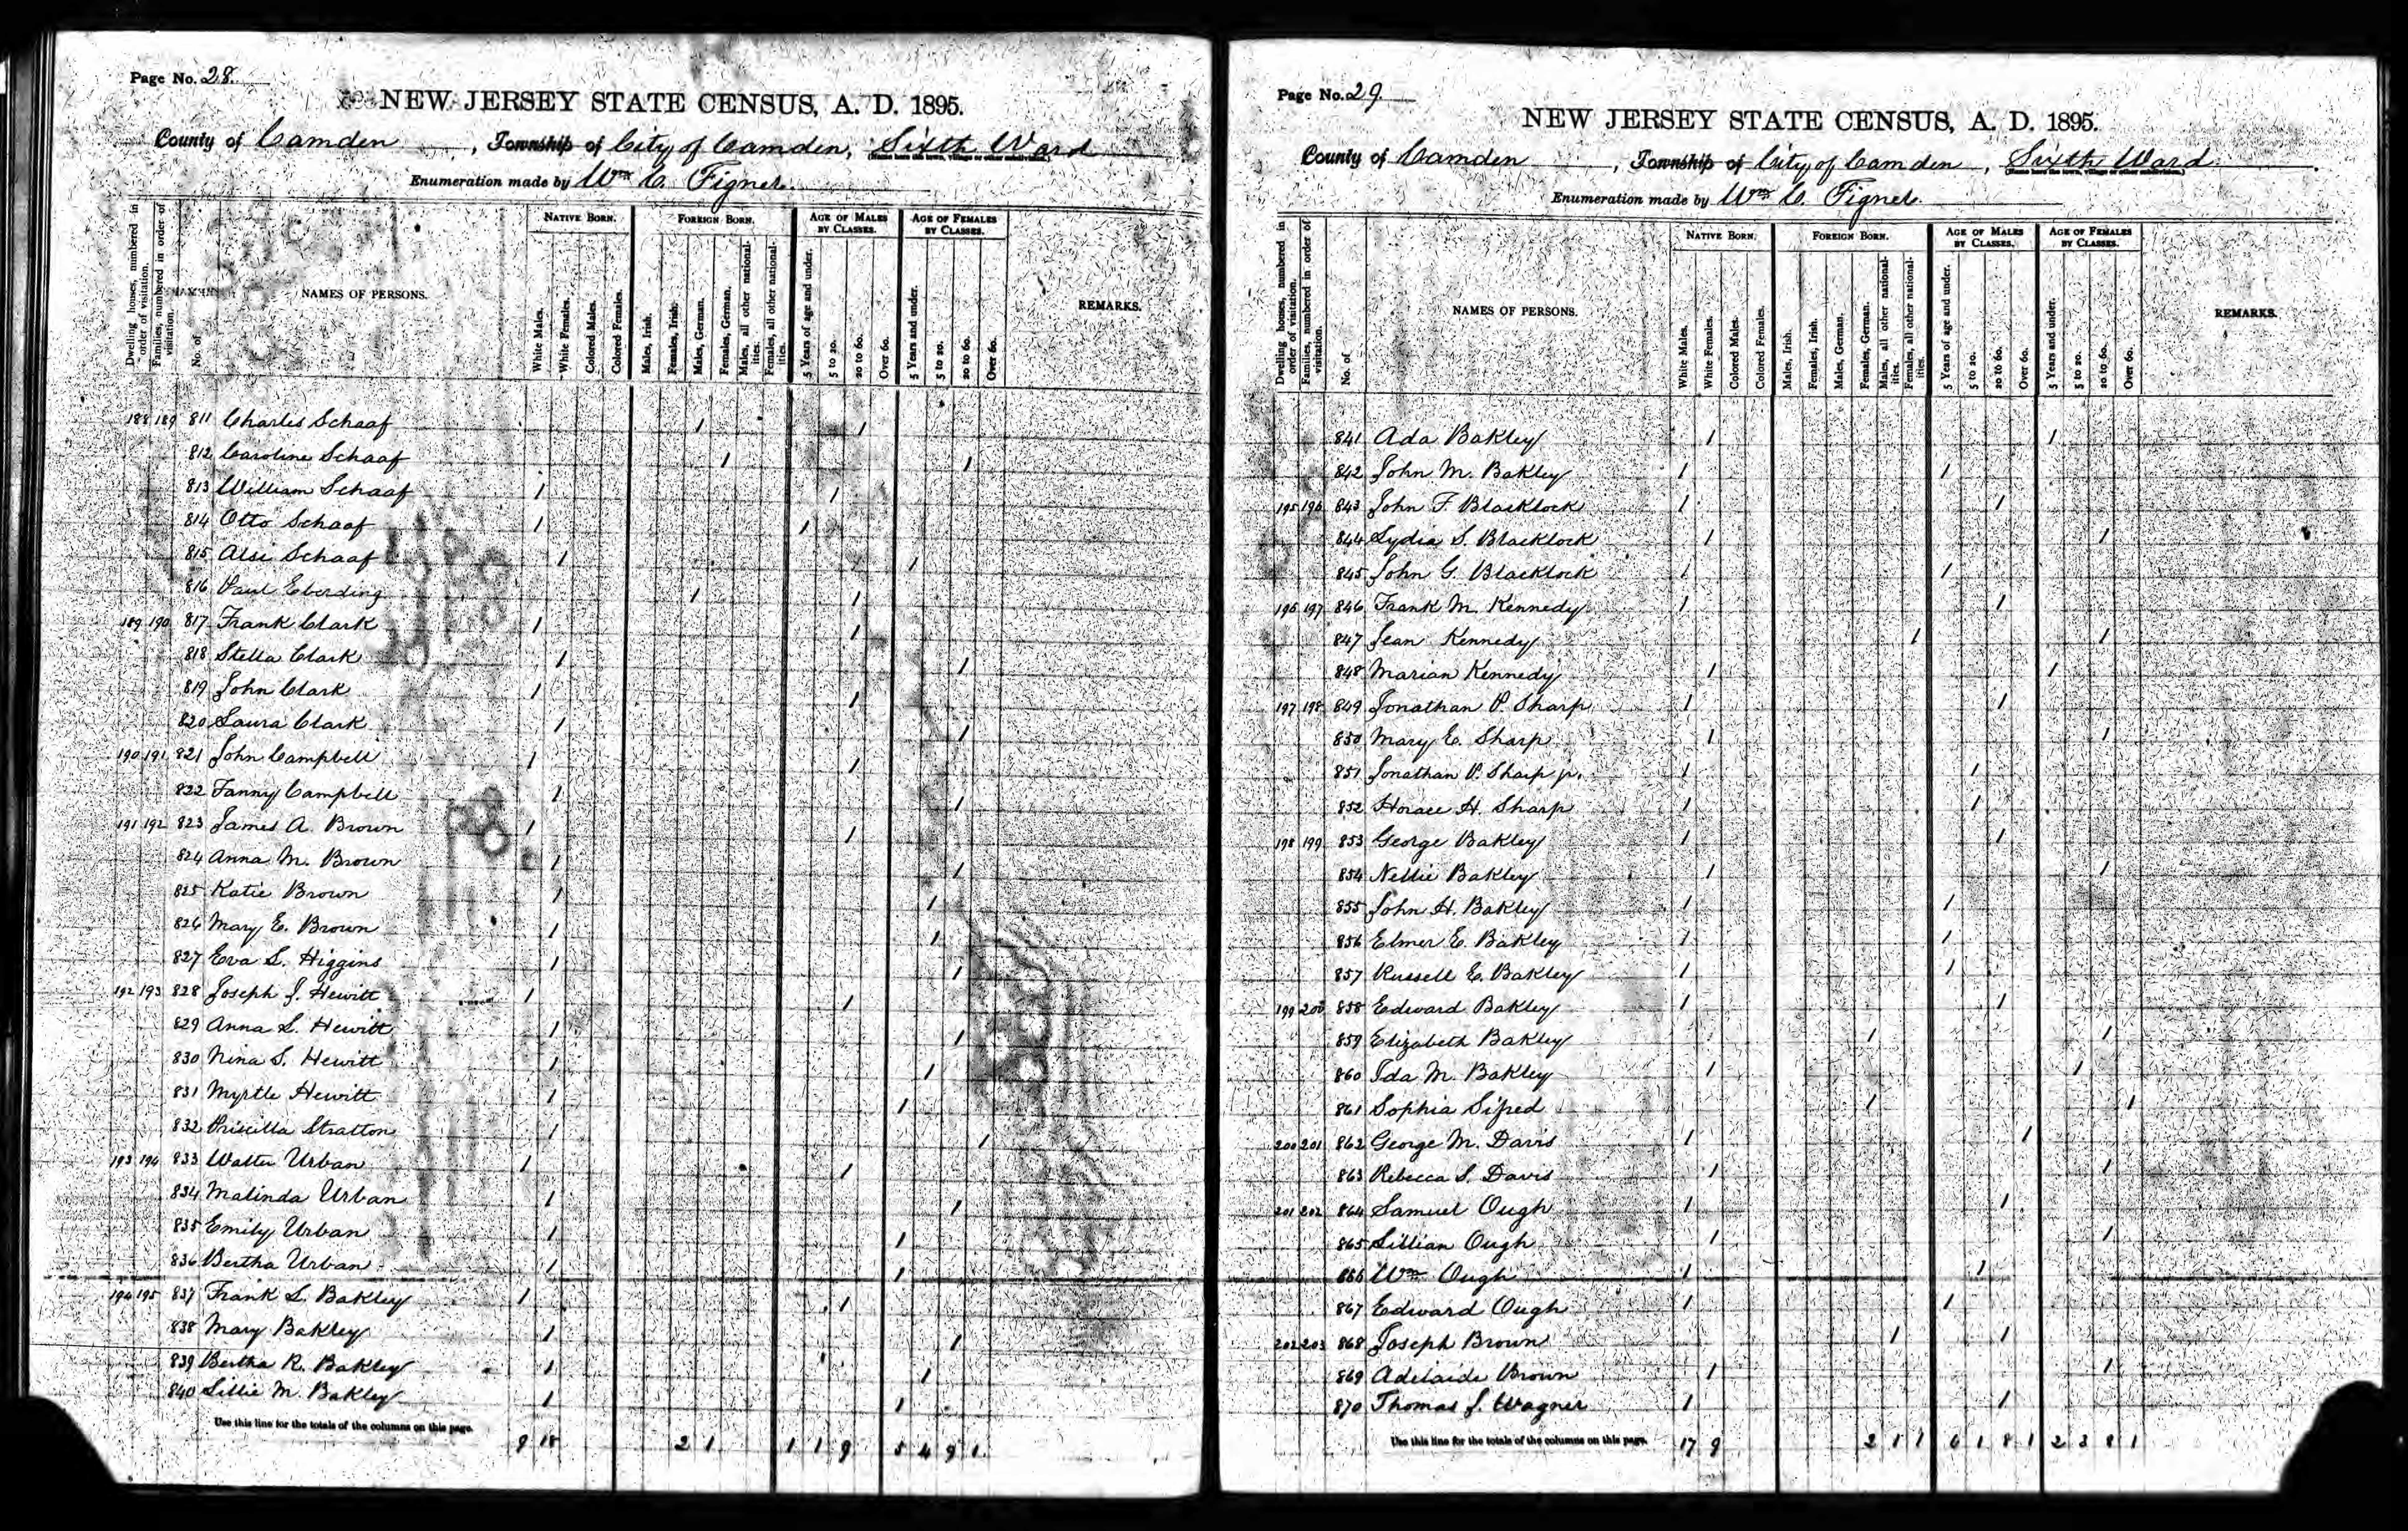 Page No. 28.
NEW JERSEY STATE CENSUS, A. D. 1895.
County of Camden, Township of City of Camden, Sixth Ward
(Name here the town, village or other subdivision.)
Enumeration made by Wm C. Figner.
Dwelling houses, numbered in order of visitation.
Families, numbered in order of visitation.
No. of
NAMES OF PERSONS.
NATIVE BORN.
White Males.
White Females.
Colored Males.
Colored Females.
FOREIGN BORN.
Males, Irish.
Females, Irish.
Males, German.
Females, German.
Males, all other nationalities.
Females, all other nationalities.
AGE OF MALES BY CLASSES.
5 Years of age and under.
5 to 20.
20 to 60.
Over 60.
AGE OF FEMALES BY CLASSES.
5 Years and under.
5 to 20.
20 to 60.
Over 60.
REMARKS.
188 189 811 Charles Schaaf 1 1
812 Caroline Schaaf 1 1
813 William Schaaf 1 1
814 Otto Schaaf 1 1
815 Alsi Schaaf 1 1
816 Paul Eberding 1 1
189 190 817 Frank Clark 1 1
818 Stella Clark 1 1
819 John Clark 1 1
820 Laura Clark 1 1
190 191 821 John Campbell 1 1
822 Fanny Campbell 1 1
191 192 823 James A. Brown 1 1
824 Anna M. Brown 1 1
825 Katie Brown 1 1
826 Mary E. Brown 1 1
827 Eva L. Higgins 1 1
192 193 828 Joseph J. Hewitt 1 1
829 Anna L. Hewitt 1 1
830 Nina S. Hewitt 1 1
831 Myrtle Hewitt 1 1
832 Priscilla Stratton 1 1
193 194 833 Walter Urban 1 1
834 Malinda Urban 1 1
835 Emily Urban 1 1
836 Bertha Urban 1 1
194 195 837 Frank L. Bakley 1 1
838 Mary Bakley 1 1
839 Bertha R. Bakley 1 1
840 Lillie M. Bakley 1 1
Use this line for the totals of the columns on this page. 9 18 2 1 1 1 9 5 4 9 1
Page No. 29
NEW JERSEY STATE CENSUS, A. D. 1895.
County of Camden, Township of City of Camden, Sixth Ward.
(Name here the town, village or other subdivision.)
Enumeration made by Wm C. Figner.
Dwelling houses, numbered in order of visitation.
Families, numbered in order of visitation.
No. of
NAMES OF PERSONS.
NATIVE BORN.
White Males.
White Females.
Colored Males.
Colored Females.
FOREIGN BORN.
Males, Irish.
Females, Irish.
Males, German.
Females, German.
Males, all other nationalities.
Females, all other nationalities.
AGE OF MALES BY CLASSES.
5 Years of age and under.
5 to 20.
20 to 60.
Over 60.
AGE OF FEMALES BY CLASSES.
5 Years and under.
5 to 20.
20 to 60.
Over 60.
REMARKS.
841 Ada Bakley 1 1
842 John M. Bakley 1 1
195 196 843 John F. Blacklock 1 1
844 Lydia S. Blacklock 1 1
845 John G. Blacklock 1 1
196 197 846 Frank M. Kennedy 1 1
847 Jean Kennedy 1 1
848 Marian Kennedy 1 1
197 198 849 Jonathan P. Sharp 1 1
850 Mary E. Sharp 1 1
851 Jonathan P. Sharp jr. 1 1
852 Horace H. Sharp 1 1
198 199 853 George Bakley 1 1
854 Nellie Bakley 1 1
855 John H. Bakley 1 1
856 Elmer E. Bakley 1 1
857 Russell E. Bakley 1 1
199 200 858 Edward Bakley 1 1
859 Elizabeth Bakley 1 1
860 Ida M. Bakley 1 1
861 Sophia Sifred 1 1
200 201 862 George M. Davis 1 1
863 Rebecca S. Davis 1 1
201 202 864 Samuel Ough 1 1
865 Lillian Ough 1 1
866 Wm Ough 1 1
867 Edward Ough 1 1
202 203 868 Joseph Brown 1 1
869 Adelaide Brown 1 1
870 Thomas J. Wagner 1 1
Use this line for the totals of the columns on this page. 17 9 2 1 1 6 1 8 1 2 3 8 1